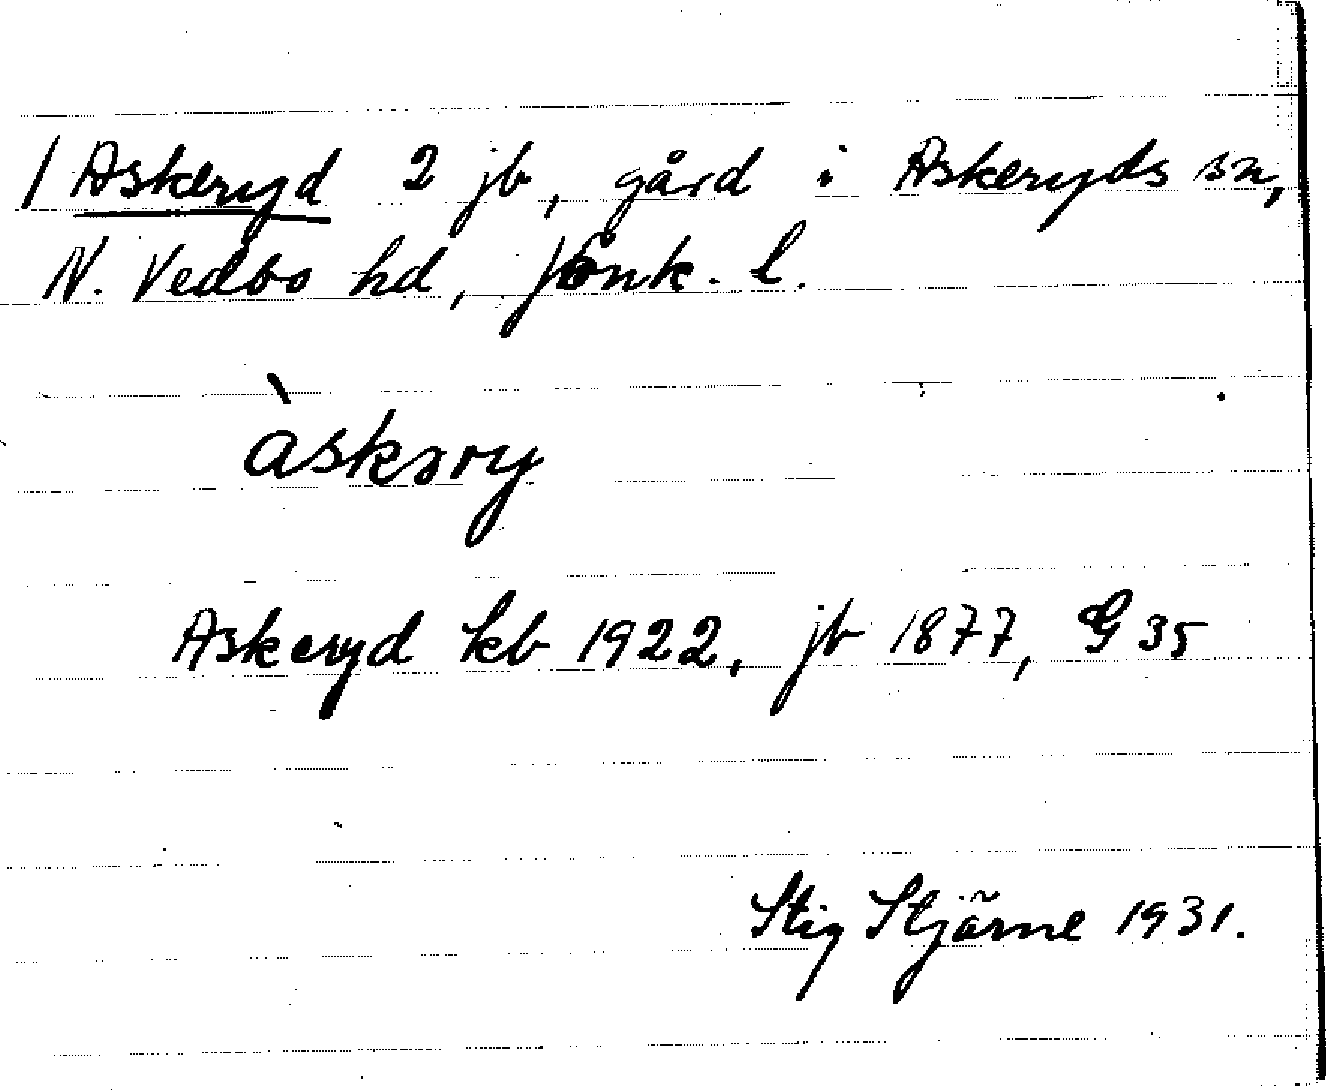 / Askeryd 2 jb, gård i Askeryds sn,
N. Vedbo hd, Jönk. l.
àskəry
Askeryd kb 1922, jb 1877, G 35
Stig Stjärne 1931.